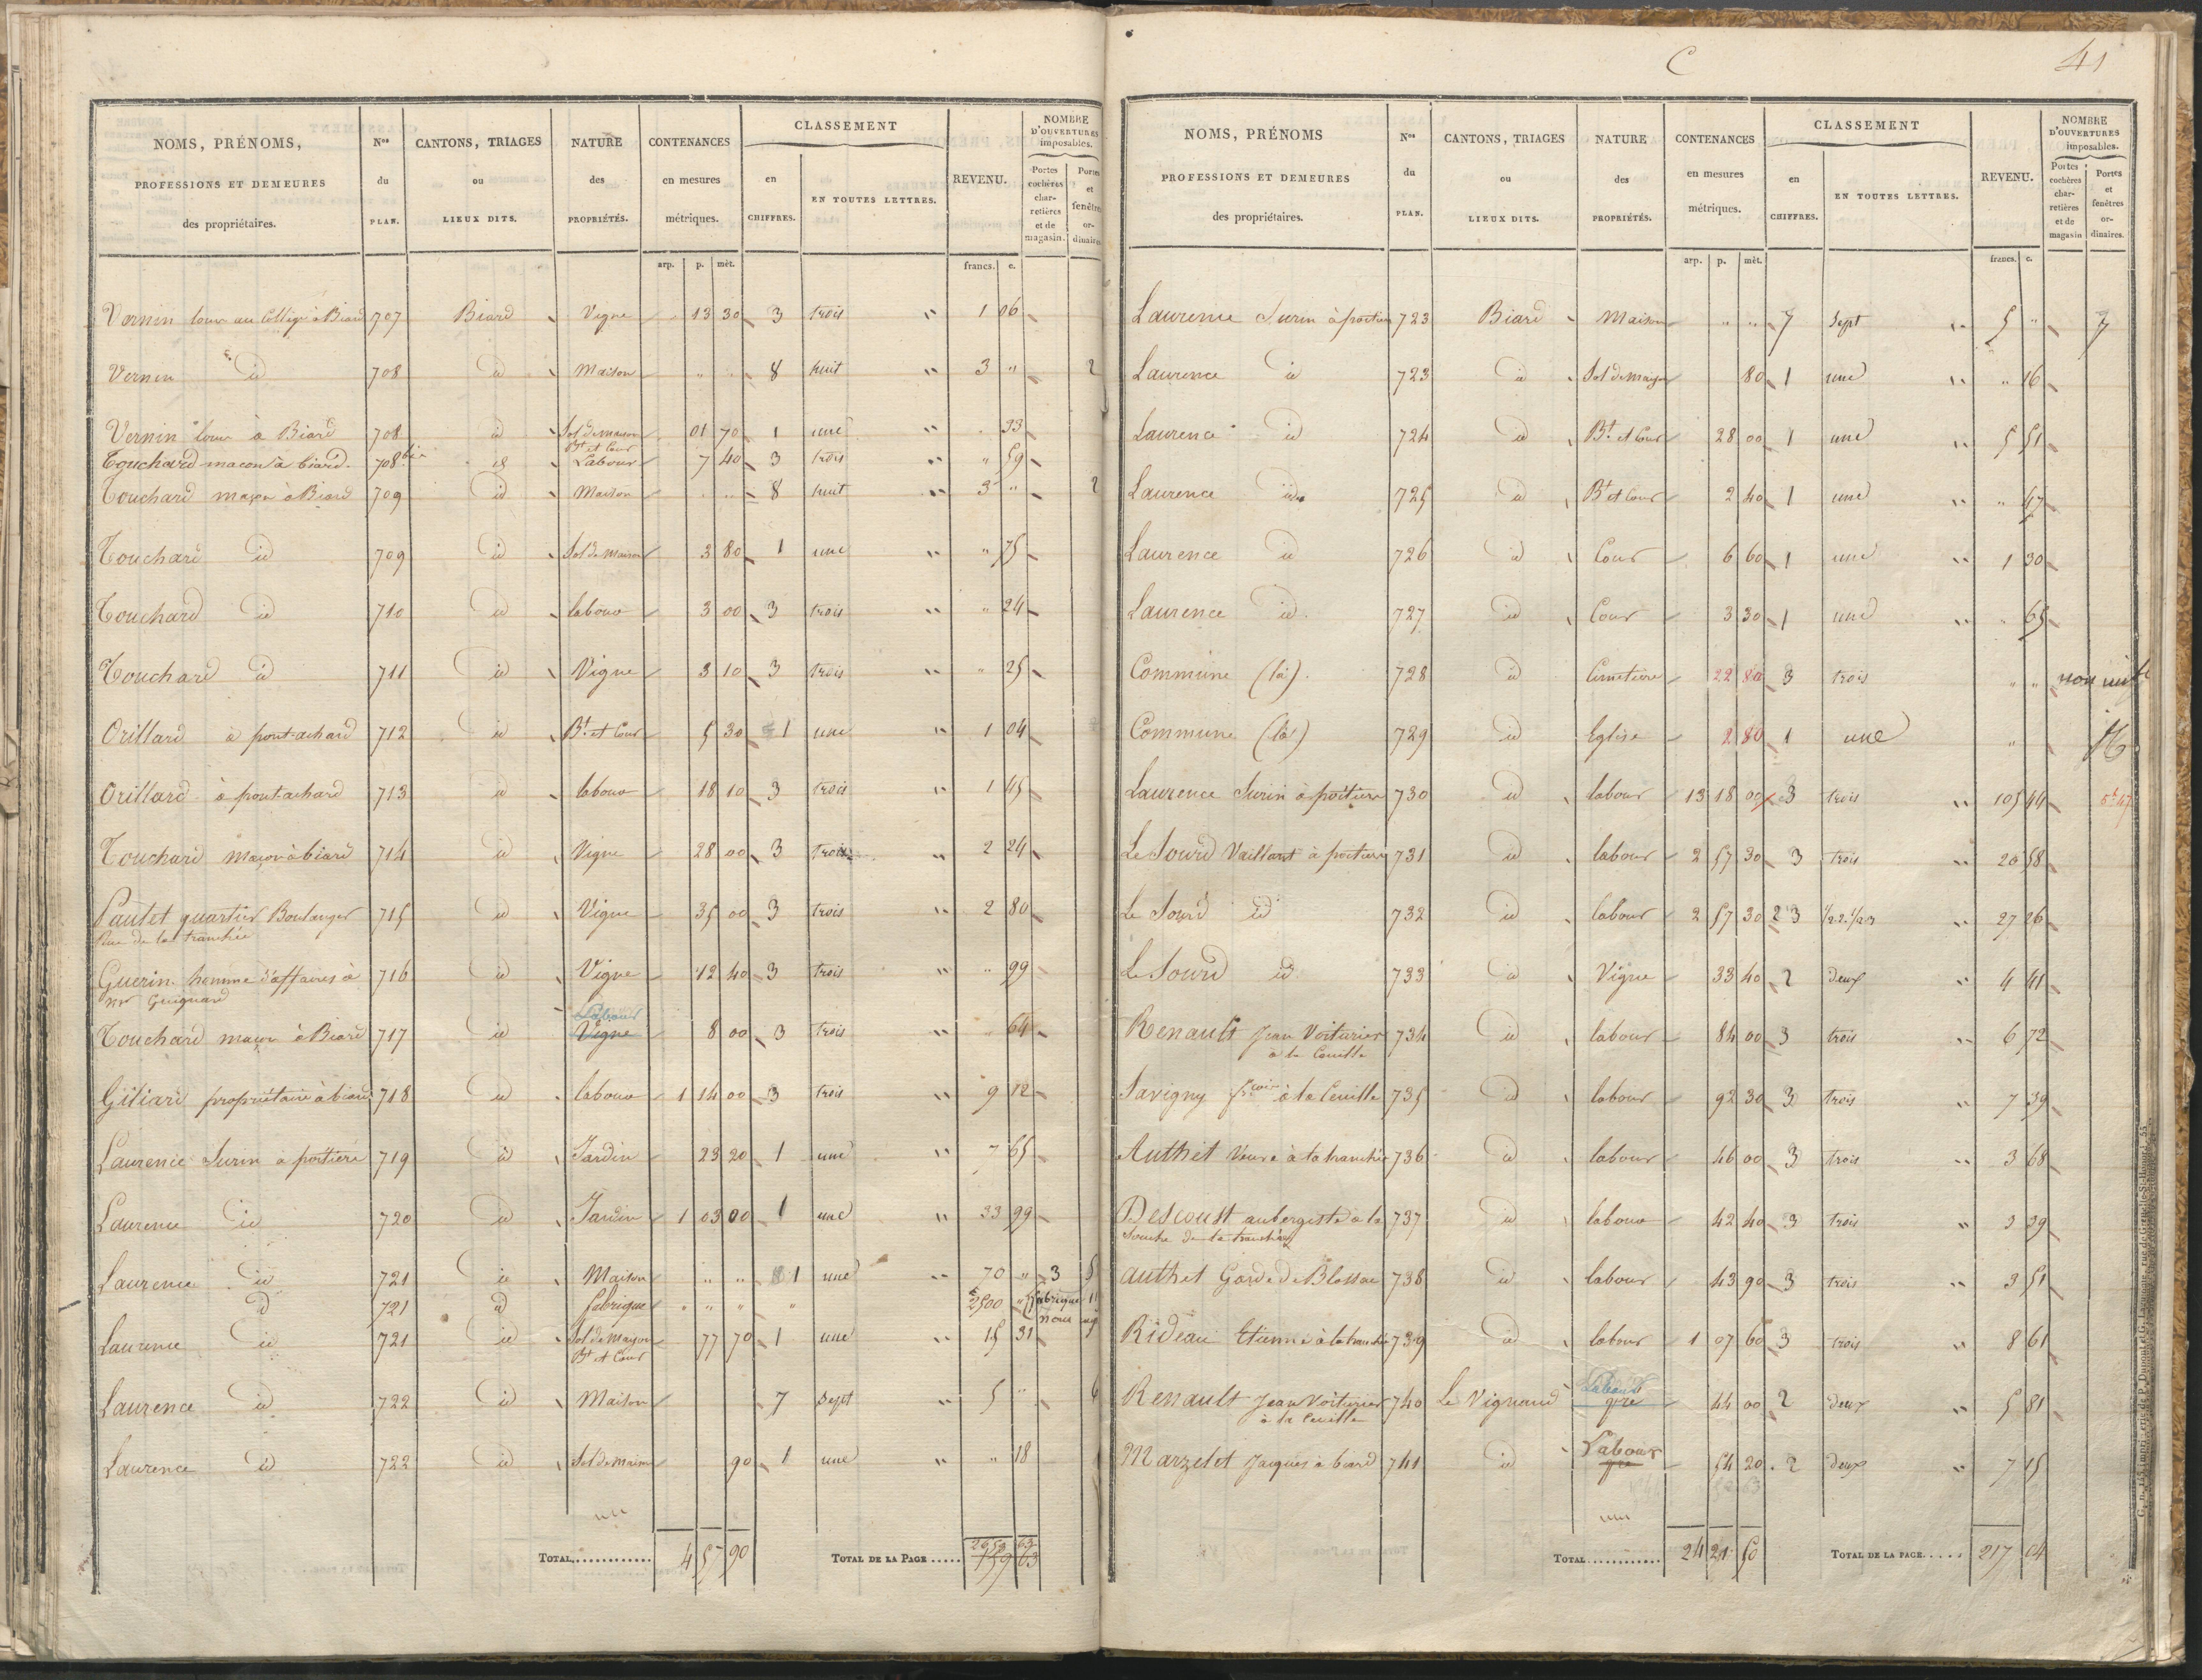 NOMS, PRÉNOMS,
PROFESSIONS ET DEMEURES
des propriétaires.
Nos
du
PLAN.
CANTONS, TRIAGES
ou
LIEUX DITS.
NATURE
des
PROPRIÉTÉS.
CONTENANCES
en mesures
métriques.
CLASSEMENT
en
CHIFFRES.
EN TOUTES LETTRES.
REVENU.
NOMBRE
D'OUVERTURES
imposables.
Portes
cochères
char-
retières
et de
magasin.
Portes
et
fenêtres
or-
dinaires
arp. p. mèt. francs. c.
Vernin au à Biard 707 Biard Vigne 13 30 3 trois " 1 06
Vernin id 708 id Maison " " 8 huit " 3 " 2
Vernin à Biard 708 id Sol de maison 01 70 1 une " 33
Bt et Cour
Touchard macon à biard. 708 bis id Labour 7 40 3 trois " " 59
Touchard maçon à Biard 709 id Maison " " 8 huit " 3 " 2
Touchard id 709 id Sol de Maison 3 80 1 une " " 75
Touchard id 710 id labour 3 00 3 trois " " 24
Touchard id 711 id Vigne 3 10 3 trois " " 25
Orillard à pont-achard 712 id Bt et Cour 5 30 1 une " 1 04
Orillard à pont-achard 713 id labour 18 10 3 trois " 1 45
Touchard maçon à biard 714 id Vigne 28 00 3 trois " 2 24
Pautet quartier Boulanger 715 id Vigne 35 00 3 trois " 2 80
Rue de la tranchée
Guerin homme d'affaires à 716 id Vigne 12 40 3 trois " " 99
mr Guignard
Labour
Touchard maçon à Biard 717 id Vigne 8 00 3 trois " " 64
Giliard propriétaire à biard 718 id labour 1 14 00 3 trois " 9 12
Laurence Surin a poitiers 719 id Jardin 23 20 1 une " 7 65
Laurence id 720 id Jardin 1 03 00 1 une " 33 99
Laurence id 721 id Maison " " 1 une " 70 " 3 5
id 721 id fabrique " " " " 2500 " fabrique 11
Laurence id 721 id Sol de Maison 77 70 1 une " 15 31
Bt et Cour
Laurence id 722 id Maison 7 Sept " 5 " 6
Laurence id 722 id Sol de Maison 90 1 une " " 18
TOTAL............ 4 57 90 TOTAL DE LA PAGE ..... 159 63
C
41
NOMS, PRÉNOMS
PROFESSIONS ET DEMEURES
des propriétaires.
Nos
du
PLAN.
CANTONS, TRIAGES
ou
LIEUX DITS.
NATURE
des
PROPRIÉTÉS.
CONTENANCES
en mesures
métriques.
CLASSEMENT
en
CHIFFRES.
EN TOUTES LETTRES.
REVENU.
NOMBRE
D'OUVERTURES
imposables.
Portes
cochères
char-
retières
et de
magasin
Portes
et
fenêtres
or-
dinaires.
arp. p. mèt. francs. c.
Laurence Surin à poitiers 723 Biard Maison " " 7 Sept " 5 " 7
Laurence id 723 id Sol de Maison 80 1 une " " 16
Laurence id 724 id Bt et Cour 28 00 1 une " 5 51
Laurence id 725 id Bt et Cour 2 40 1 une " " 47
Laurence id 726 id Cour 6 60 1 une " 1 30
Laurence id. 727 id Cour 3 30 1 une " " 65
Commune (la). 728 id Cimetière 22 80 3 trois " " non
Commune (la) 729 id Eglise 2 80 1 une "
Laurence Surin à poitiers 730 id labour 13 18 00 3 trois " 105 44
Le Sourd Vaillant à poitiers 731 id labour 2 57 30 3 trois " 20 58
Le Sourd id 732 id labour 2 57 30 2 3 1/2 2. 1/2 3 " 27 26
Le Sourd id 733 id Vigne 33 40 2 deux " 4 41
Renault Jean Voiturier 734 id labour 84 00 3 trois " 6 72
à la Ceuille
Savigny à la Ceuille 735 id labour 92 30 3 trois " 7 39
Authet Veuve à la tranchée 736 id labour 46 00 3 trois " 3 68
Descoust aubergiste à la 737 id labour 42 40 3 trois " 3 39
de la tranchée
Authet Garde de Blossac 738 id labour 43 90 3 trois " 3 51
Rideau Etienne à la tranchée 739 id labour 1 07 60 3 trois " 8 61
Labour
Renault Jean Voiturier 740 Le Vignaud pre 44 00 2 deux " 5 81
à la Ceuille
Labour
Marzelet Jacques à biard 741 id pre 54 20 2 deux " 7 15
TOTAL............ 24 21 50 TOTAL DE LA PAGE..... 217 04